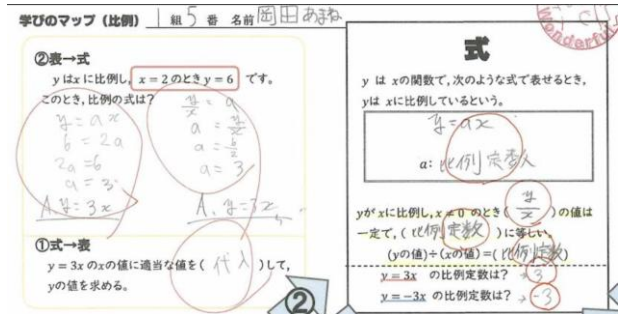 学びのマップ(比例) 1 組 5 番 名前 岡田あまね
②表→式
yはxに比例し、x=2のときy=6 です。
このとき、比例の式は?
y=ax
6=2a
2a=6
a=3
A. y=3x
y/x=a
a=y/x
a=6/2
a=3
A. y=3x
①式→表
y=3xのxの値に適当な値を(代入)して,
yの値を求める。
②
Wonderful
式
y は xの関数で,次のような式で表せるとき,
yは xに比例しているという。
y=ax
a: 比例定数
yがxに比例し,x≠0 のとき( y/x )の値は
一定で,(比例定数)に等しい。
(yの値)÷(xの値)=(比例定数)
y=3x の比例定数は? →3
y=-3x の比例定数は? →-3